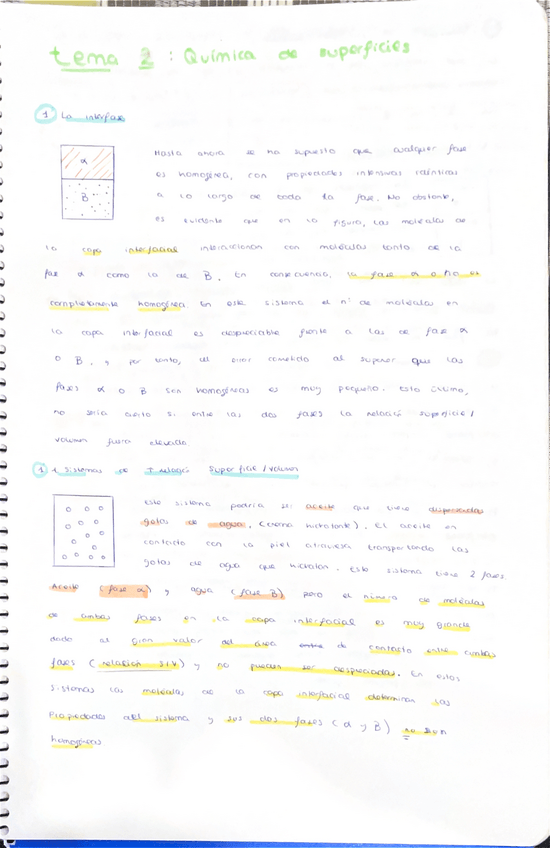 tema 2 : Química de superficies
1 La interfase
α
B
Hasta ahora se ha supuesto que cualquier fase
es homogénea, con propiedades intensivas idénticas
a lo largo de toda la fase. No obstante,
es evidente que en la figura, las moléculas de
la capa interfacial interaccionan con moléculas tanto de la
fase α como la de B. En consecuencia, la fase α o no es
completamente homogénea. En este sistema el nº de moléculas en
la capa interfacial es despreciable frente a las de fase α
o B, y por tanto, el error cometido al suponer que las
fases α o B son homogéneas es muy pequeño. Esto último,
no sería cierto si entre las dos fases la relació superficie/
volumen fuera elevado.
1.1 Sistemas de ↑ relació superficie/volumen
Este sistema podría ser aceite que tiene dispersadas
gotas de agua. (crema hidratante). El aceite en
contacto con la piel atraviesa transportando las
gotas de agua que hidratan. Este sistema tiene 2 fases.
Aceite (fase α) y agua (fase B) pero el número de moléculas
de ambas fases en la capa interfacial es muy grande
dado al gran valor del área entre de contacto entre ambas
fases (relación S/V) y no pueden ser despreciadas. En estos
sistemas las moléculas de la capa interfacial determinan las
Propiedades del sistema y sus dos fases (α y B) no son
homogéneas